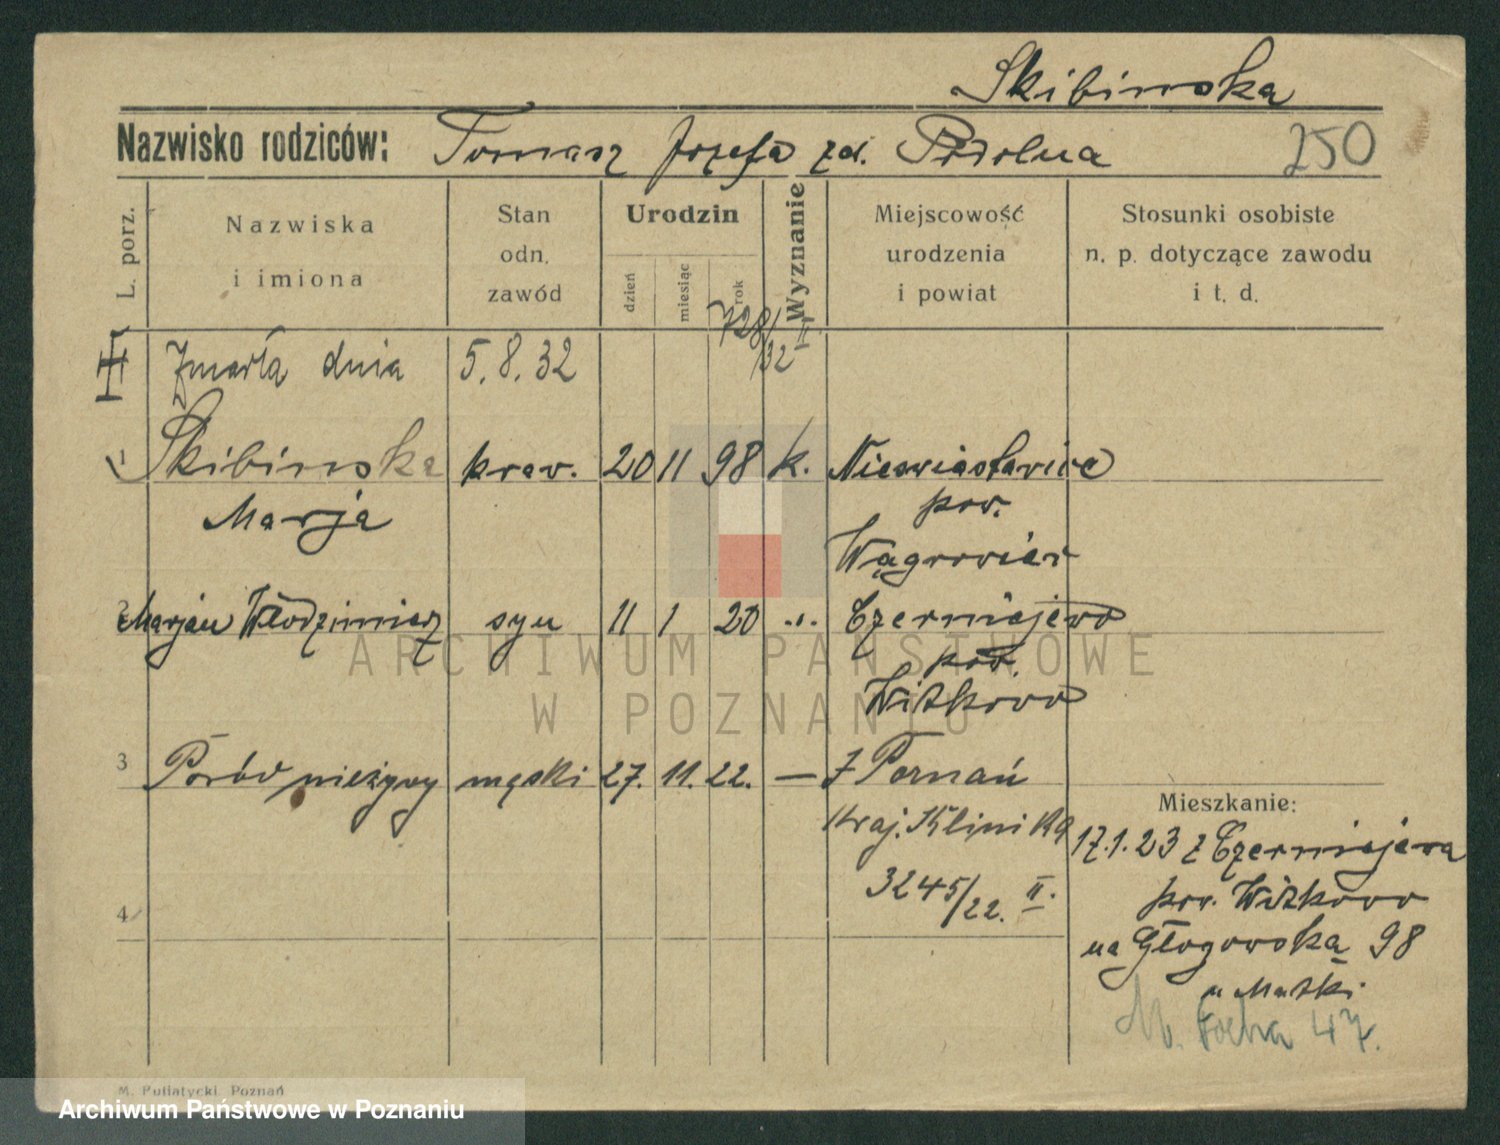 Skibinska
Nazwisko rodziców: Tomasz Jozefa zd. Podolna
250
L. porz.
Nazwiska
i imiona
Stan
odn.
zawód
Urodzin
dzień
miesiąc
rok
Wyznanie
Miejscowość
urodzenia
i powiat
Stosunki osobiste
n. p. dotyczące zawodu
i t. d.
728/32 II
Zmarła dnia 5. 8. 32
1 Skibinska kraw. 20 11 98 k.
Marja
pow.
Wągrowiec
2 Marjan Włodzimierz syn 11 1 20 „ Czerniejewo
pow.
Witkowo
3 Poród nieżywy męski 27. 11. 22. — Poznań
Kraj. Klinika
3245/22. II.
4
Mieszkanie:
17.1.23 z Czerniejewa
pow. Witkowo
na Głogowska 98
u Matki
M. Focha 47.
ARCHIWUM PAŃSTWOWE
W POZNANIU
M. Putiatycki, Poznań
Archiwum Państwowe w Poznaniu